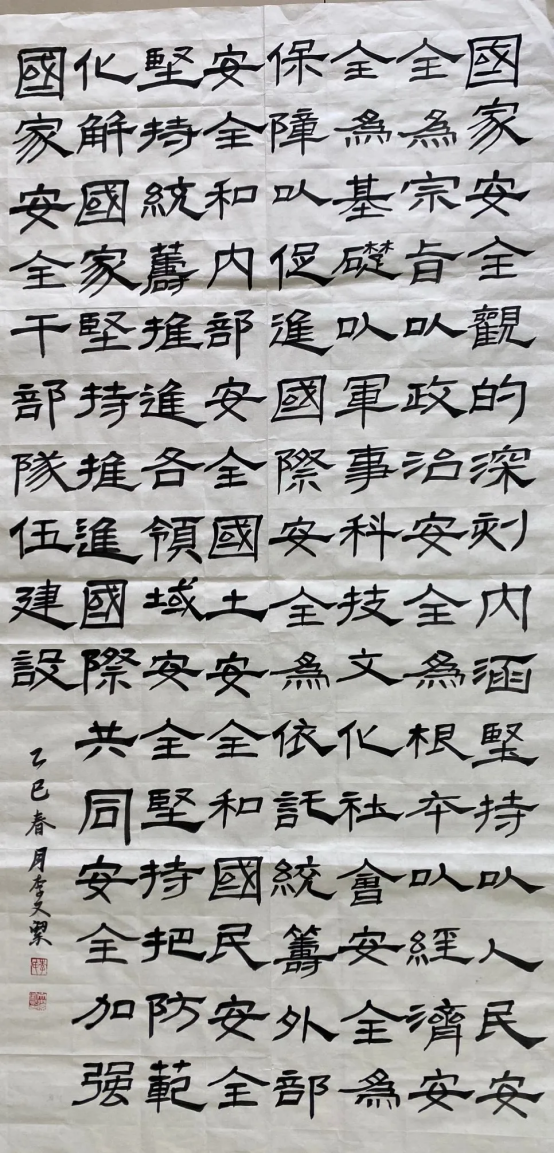 國家安全觀的深刻内涵堅持以人民安
全為宗旨以政治安全為根本以經濟安
全為基礎以軍事科技文化社會安全為
保障以促進國際安全為依託統籌外部
安全和内部安全國土安全和國民安全
堅持統籌推進各領域安全堅持把防範
化解國家堅持推進國際共同安全加强
國家安全干部隊伍建設
乙巳春月李文